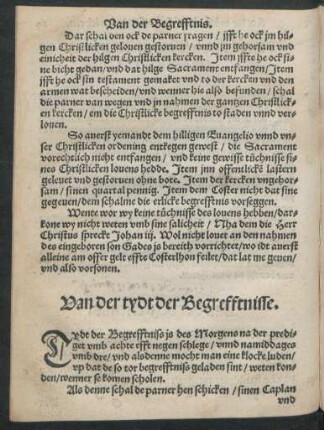 Van der Begrefftnis.
Dar schal den ock de parner fragen / ifft he ock im hil-
gen Christlicken gelouen gestoruen / vnnd im gehorsam vnd
einicheit der hilgen Christlicken kercken. Jtem ifft he ock si-
ne bicht gedan / vnd dat hilge Sacrament entfangen / Jtem
ifft he ock sin testament gemaket vnd to der kercken vnd den
armen wat bescheiden / vnd wenner his also befunden / schal
die parner van wegen vnd in nahmen der gantzen Christlick-
en kercken / em die Christlicke begrefftnis to staden vnnd ver-
lonen.
So auerst yemandt dem hilligen Euangelio vnnd vn-
ser Christlicken ordening entkegen gewest / die Sacrament
vorechtlich nicht entfangen / vnd keine gewisse tüchnisse si-
nes Christlicken louens hedde. Jtem inn offentlicke lastern
geleuet vnd gestoruen ohne bote. Jtem der kercken vngehor-
sam / sinen quartal pennig. Jtem dem Coster nicht dat sine
gegeuen / dem schalme die erlicke begrefftnis vorseggen.
Wente wor wy keine tüchnisse des louens hebben / dar-
kone wy nicht weten vmb sine salicheit / Nha dem die Herr
Christus spreckt Johan iij. Wol nicht louet an den nahmen
des eingeboren son Gades is bereith vorrichtet / wo idt auerst
alleine am offer gele effte Costerlhon feilet / dat lat me geuen /
vnd also vorsonen.
Van der tydt der Begrefftnisse.
Tydt der Begrefftniss is des Morgens na der predi-
get vmb achte efft negen schlege / vnnd namiddages
vmb dre / vnd alsdenne mocht man eine klocke luden /
vp dat de so tor begrefftniss geladen sint / weten kon-
den / wenner se komen scholen.
Als denne schal de parner hen schicken / sinen Caplan
vnd